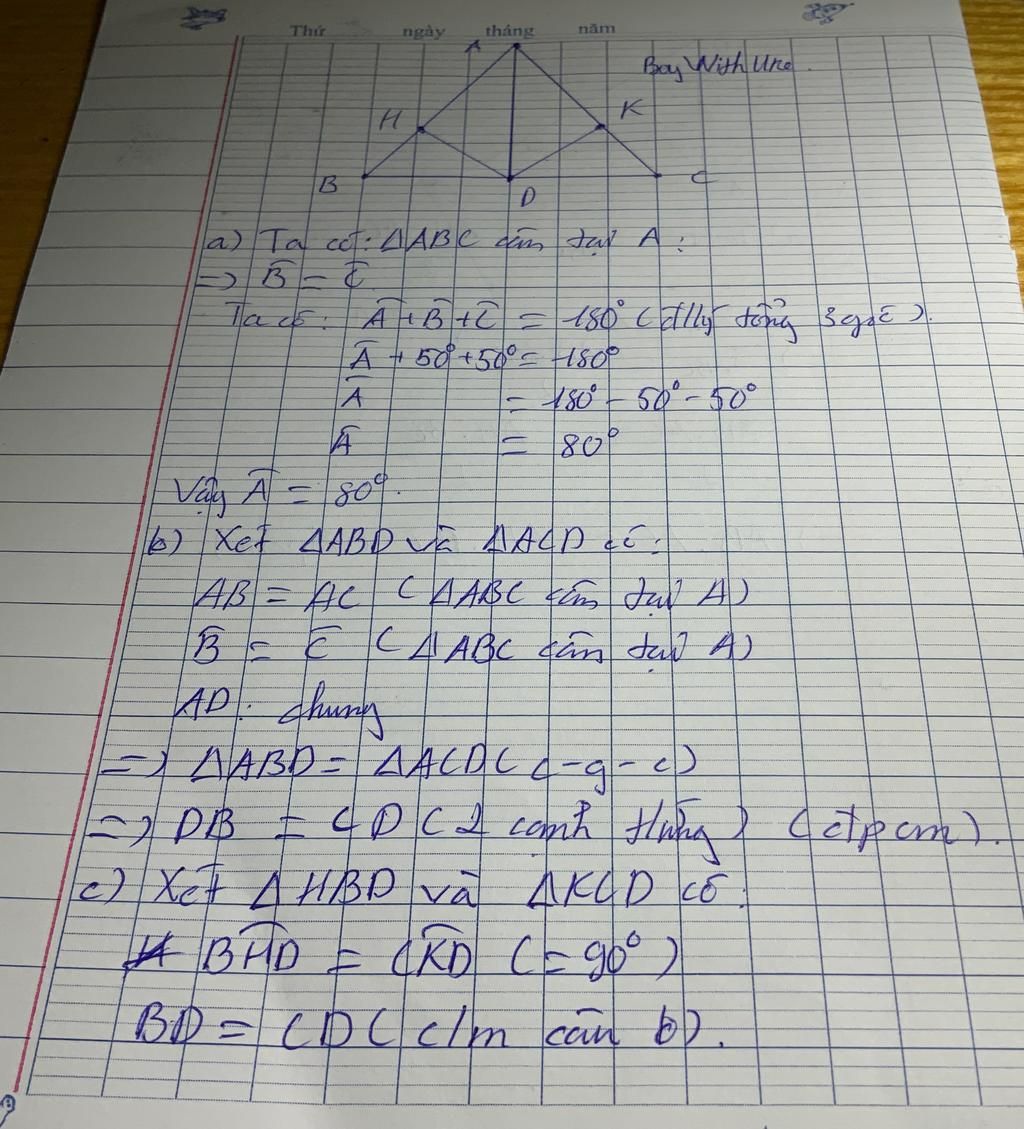 Thứ ngày tháng năm
A
Boy With Uke.
H K
B D C
a) Ta có: ΔABC cân tại A:
=> B̂ = Ĉ
Ta có: Â + B̂ + Ĉ = 180° (đ/lý tổng 3 góc).
 + 50° + 50° = 180°
 = 180° - 50° - 50°
 = 80°
Vậy  = 80°.
b) Xét ΔABD và ΔACD có:
AB = AC (ΔABC cân tại A)
B̂ = Ĉ (ΔABC cân tại A)
AD: chung
=> ΔABD = ΔACD (c-g-c)
=> DB = CD (2 cạnh tứng) (đpcm).
c) Xét ΔHBD và ΔKCD có:
BHD = CKD (= 90°)
BD = CD (c/m căn b).